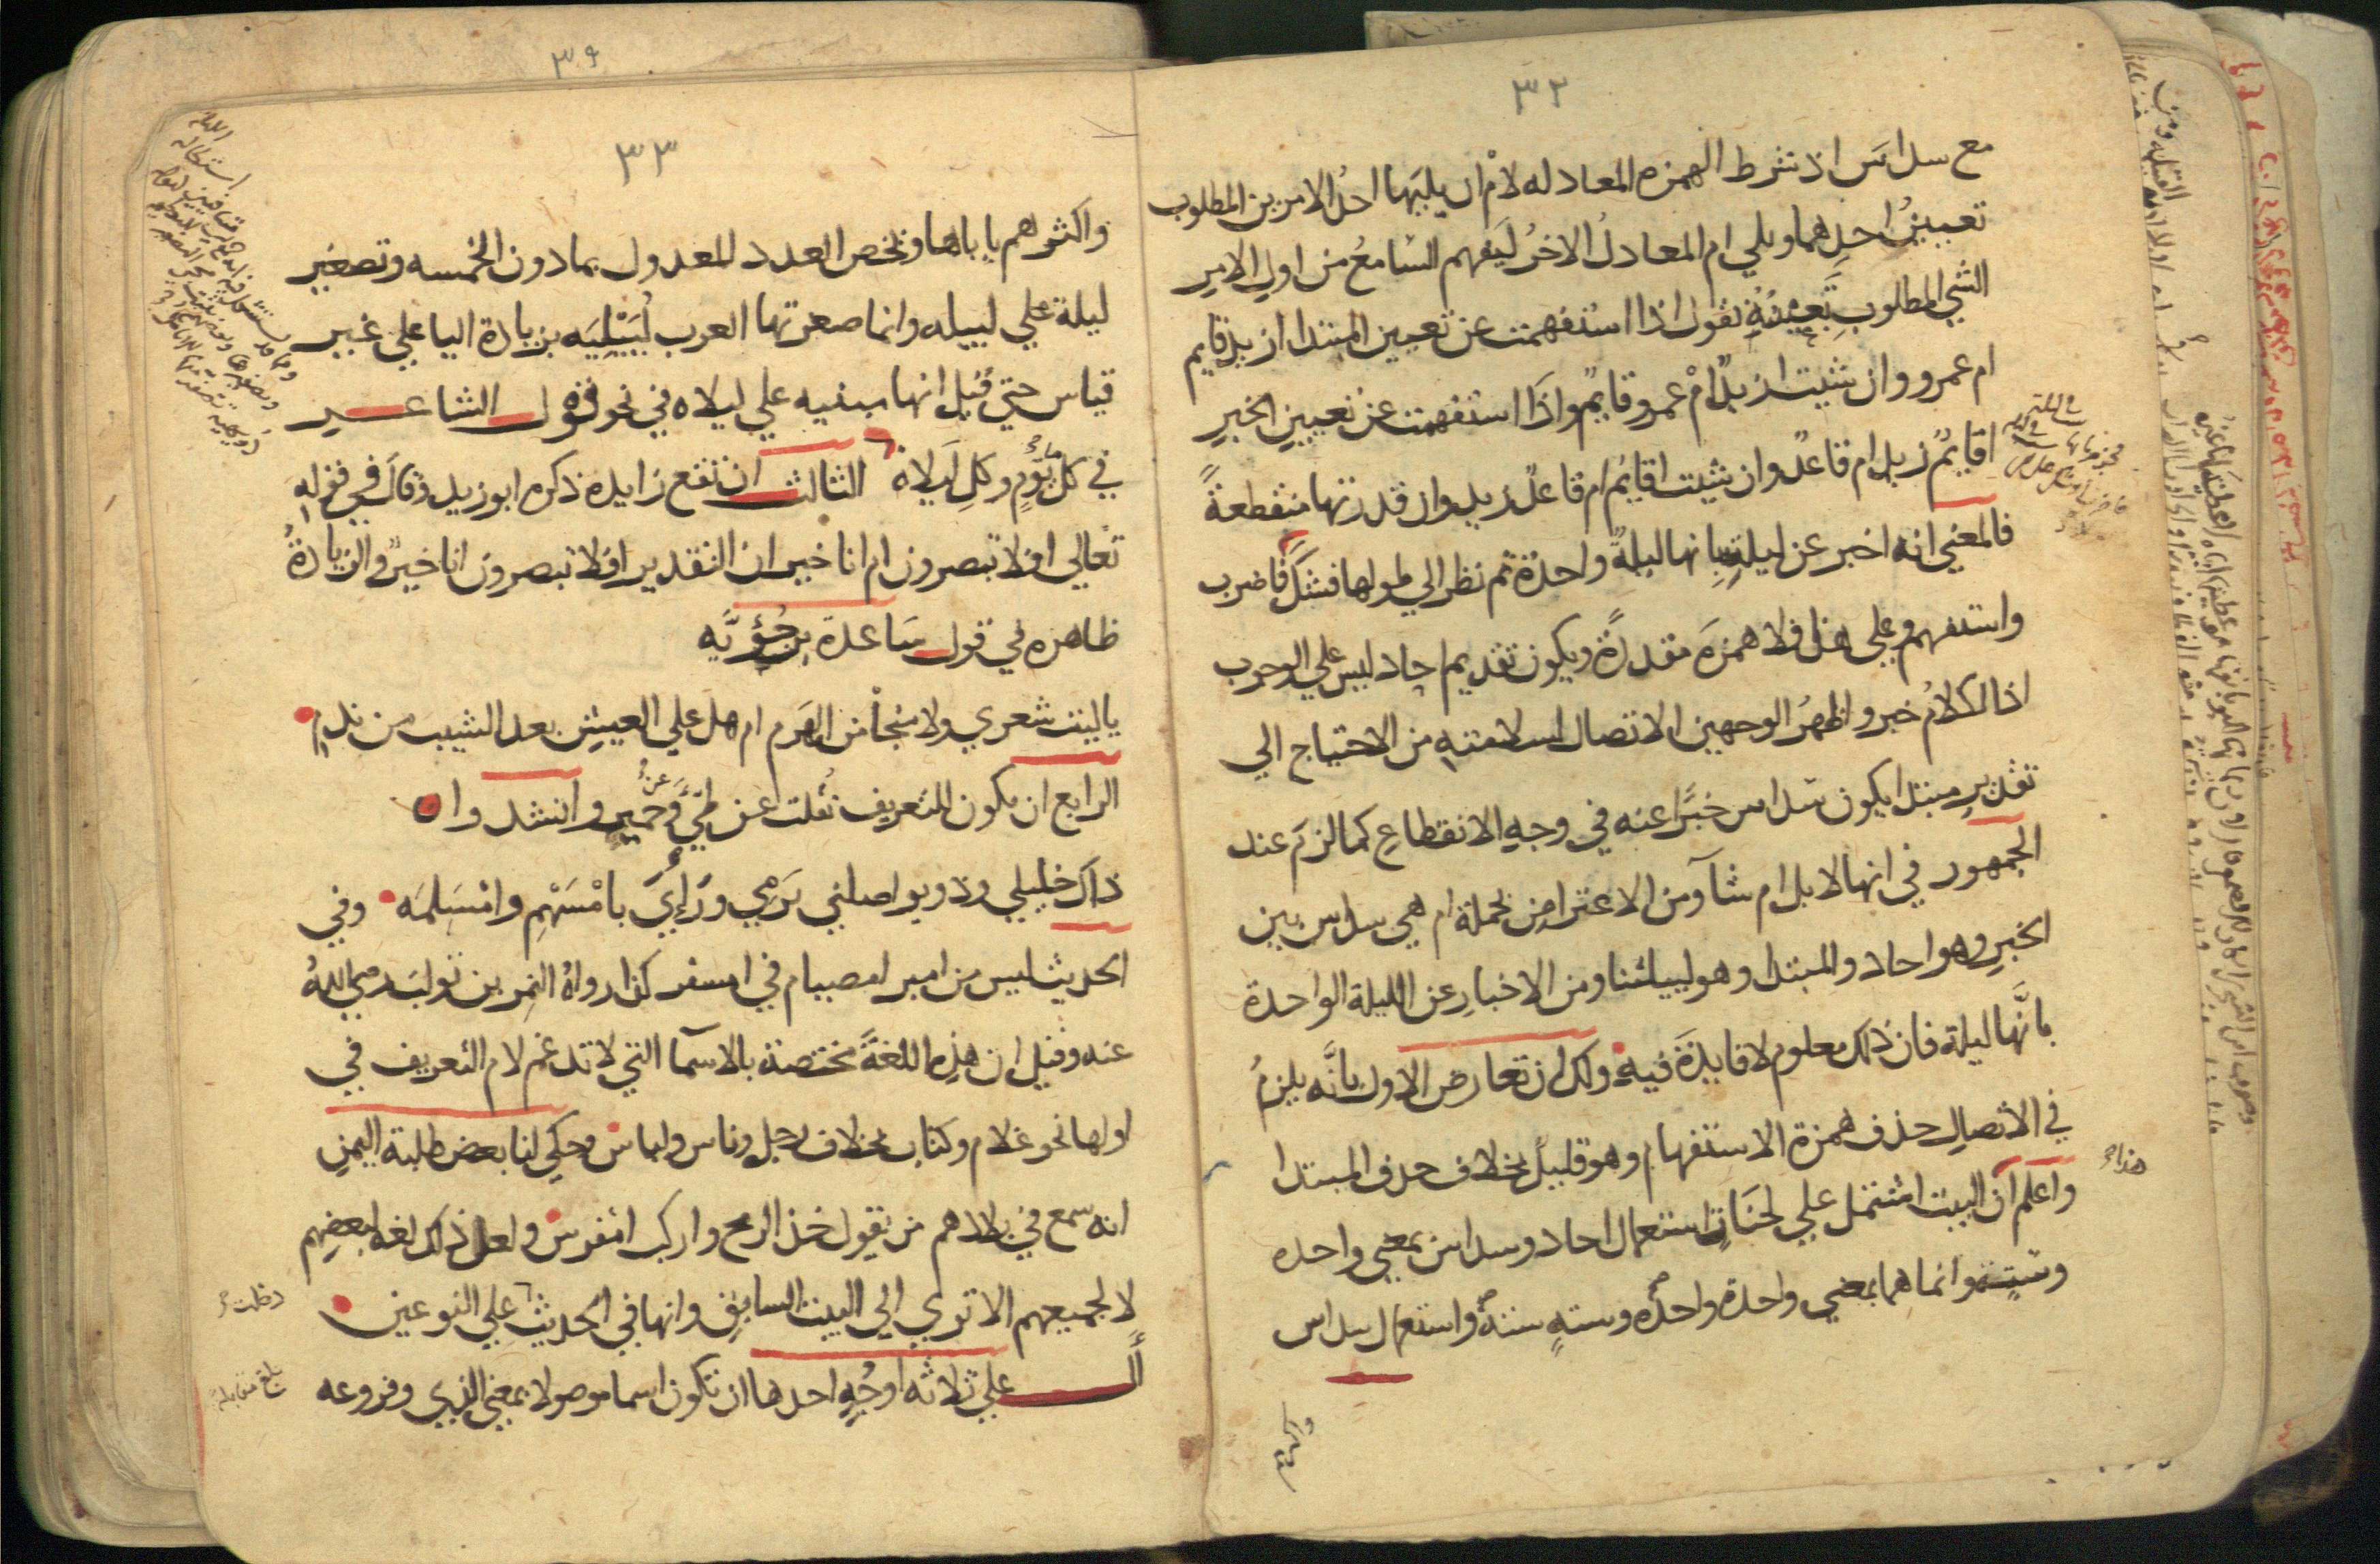 ٣٢
مع سداس اذ شرط الهمزه المعادله لام ان يليها احد الامرين المطلوب
تعيين احدهما ويلي ام المعادل الاخر ليفهم السامع من اول الامر
الشي المطلوب تعيينه تقول اذا استفهمت عن تعيين المبتدا ازيد قايم
ام عمرو وان شيت ازيد ام عمرو قايم واذا استفهمت عن تعيين الخبر
اقايم زيد ام قاعد وان شيت اقايم ام قاعد زيد وان قدرتها منقطعة
فالمعني انه اخبر عن ليلة بانها ليلة واحدة ثم نظر الي طولها فشك فاضرب
واستفهم وعلي هذا فلا همزة مقدرة ويكون تقديم احاد ليس علي الوجوب
اذ الكلام خبر واظهر الوجهين الاتصال لسلامته من الاحتياج الي
تقدير مبتدا يكون سداس خبرا عنه في وجه الانقطاع كما لزم عند
الجمهور في انها لابل ام شآ ومن الاعتراض بجملة ام هي سداس بين
الخبر وهو احاد والمبتدا وهو لييلتنا ومن الاخبار عن الليلة الواحدة
بانها ليلة فان ذلك معلوم لا فايدة فيه ولك ان تعارض الاول بانه يلزم
في الاتصال حذف همزة الاستفهام وهو قليل بخلاف حذف المبتدا
واعلم ان البيت اشتمل علي لحنات استعمال احاد وسداس بمعني واحده
وست وانما هما بمعني واحدة واحده وسته سته واستعمال سداس
٣٩
٣٣
واكثرهم ياباها ويخص العدد المعدول بما دون الخمسه وتصغير
ليلة علي لييله وانما صغرتها العرب لييليه بزيادة اليا علي غير
قياس حتي قيل انها مبنيه علي ليلاه في نحو قول الشاعر
في كل يوم وكل ليلاه الثالث ان تقع زايده ذكره ابو زيد وقال في قوله
تعالي افلا تبصرون ام انا خير ان التقدير افلا تبصرون انا خير والزيادة
ظاهره في قول ساعدة بن جؤيه
ياليت شعري ولا منجا من الهرم ام هل علي العيش بعد الشيب من ندم
الرابع ان يكون للتعريف نقلت عن طي وعن حمير وانشدوا
ذاك خليلي وذو يواصلني يرمي ورائي بامسهم وامسلمه وفي
الحديث ليس من امبر امصيام في امسفر كذا رواه النمر بن تولب رضي الله
عنه وقيل ان هذه اللغة مختصة بالاسما التي لا تدغم لام التعريف في
اولها نحو غلام وكتاب بخلاف رجل وناس ولباس وحكي لنا بعض طلبة اليمن
انه سمع في بلادهم من يقول خذ الرمح واركب امفرس ولعل ذلك لغة لبعضهم
لا لجميعهم الا تري الي البيت السابق وانها في الحديث علي النوعين
أل علي ثلاثه اوجه احدها ان تكون اسما موصولا بمعني الذي وفروعه